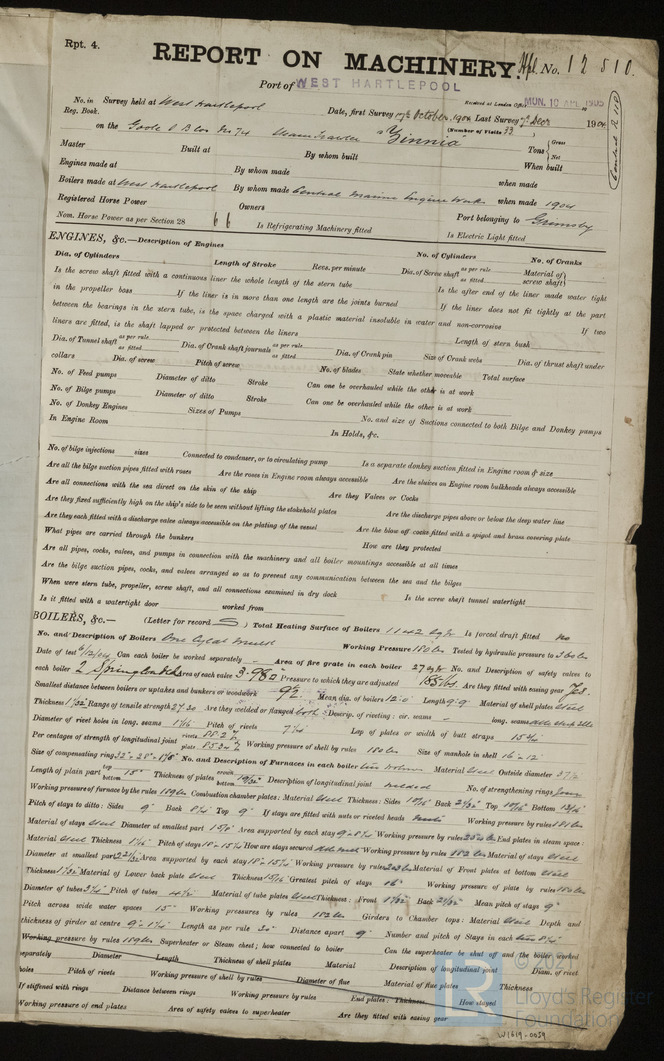 Rpt. 4.
REPORT ON MACHINERY.
Hpl. No. 12810.
Port of WEST HARTLEPOOL
Received at London Office MON. 10 APL 1905
No. in Survey held at West Hartlepool Date, first Survey 17th October, 1904 Last Survey 7th Decr 1904
Reg. Book. (Number of Visits 33)
on the Goole S B Co's No 74 Steam Trawler "Zinnia" Tons { Gross Net
Master Built at By whom built When built
Engines made at By whom made when made
Boilers made at West Hartlepool By whom made Central Marine Engine Works when made 1904
Registered Horse Power Owners Port belonging to Grimsby
Nom. Horse Power as per Section 28 66 Is Refrigerating Machinery fitted Is Electric Light fitted
ENGINES, &c.—Description of Engines No. of Cylinders No. of Cranks
Dia. of Cylinders Length of Stroke Revs. per minute Dia. of Screw shaft as per rule as fitted Material of screw shaft
Is the screw shaft fitted with a continuous liner the whole length of the stern tube Is the after end of the liner made water tight
in the propeller boss If the liner is in more than one length are the joints burned If the liner does not fit tightly at the part
between the bearings in the stern tube, is the space charged with a plastic material insoluble in water and non-corrosive If two
liners are fitted, is the shaft lapped or protected between the liners Length of stern bush
Dia. of Tunnel shaft as per rule as fitted Dia. of Crank shaft journals as per rule as fitted Dia. of Crank pin Size of Crank webs Dia. of thrust shaft under
collars Dia. of screw Pitch of screw No. of blades State whether moveable Total surface
No. of Feed pumps Diameter of ditto Stroke Can one be overhauled while the other is at work
No. of Bilge pumps Diameter of ditto Stroke Can one be overhauled while the other is at work
No. of Donkey Engines Sizes of Pumps No. and size of Suctions connected to both Bilge and Donkey pumps
In Engine Room In Holds, &c.
No. of bilge injections sizes Connected to condenser, or to circulating pump Is a separate donkey suction fitted in Engine room & size
Are all the bilge suction pipes fitted with roses Are the roses in Engine room always accessible Are the sluices on Engine room bulkheads always accessible
Are all connections with the sea direct on the skin of the ship Are they Valves or Cocks
Are they fixed sufficiently high on the ship's side to be seen without lifting the stokehold plates Are the discharge pipes above or below the deep water line
Are they each fitted with a discharge valve always accessible on the plating of the vessel Are the blow off cocks fitted with a spigot and brass covering plate
What pipes are carried through the bunkers How are they protected
Are all pipes, cocks, valves, and pumps in connection with the machinery and all boiler mountings accessible at all times
Are the bilge suction pipes, cocks, and valves arranged so as to prevent any communication between the sea and the bilges
When were stern tube, propeller, screw shaft, and all connections examined in dry dock Is the screw shaft tunnel watertight
Is it fitted with a watertight door worked from
BOILERS, &c.— (Letter for record S) Total Heating Surface of Boilers 1142 sq ft Is forced draft fitted no
No. and Description of Boilers One Cylal Multi Working Pressure 180 lbs Tested by hydraulic pressure to 360 lbs
Date of test 6/12/04 Can each boiler be worked separately - Area of fire grate in each boiler 27 sq ft No. and Description of safety valves to
each boiler 2 Spring loaded Area of each valve 3.98 Pressure to which they are adjusted 185 lbs. Are they fitted with easing gear Yes.
Smallest distance between boilers or uptakes and bunkers or woodwork 9" Mean dia. of boilers 12'0" Length 9'9" Material of shell plates Steel
Thickness 1 1/32 Range of tensile strength 27.30 Are they welded or flanged both Descrip. of riveting: cir. seams long. seams
Diameter of rivet holes in long. seams 1 1/16 Pitch of rivets Lap of plates or width of butt straps 15 3/4
Per centages of strength of longitudinal joint rivets plate Working pressure of shell by rules 180 lbs Size of manhole in shell 16 × 12
Size of compensating ring No. and Description of Furnaces in each boiler Material Steel Outside diameter
Length of plain part top bottom Thickness of plates crown bottom 19/32 Description of longitudinal joint welded No. of strengthening rings
Working pressure of furnace by the rules 189 lbs Combustion chamber plates: Material Steel Thickness: Sides Back Top Bottom
Pitch of stays to ditto: Sides 9" Back Top 9" If stays are fitted with nuts or riveted heads nuts Working pressure by rules 181 lbs
Material of stays Steel Diameter at smallest part Area supported by each stay Working pressure by rules End plates in steam space:
Material Steel Thickness 1 1/16 Pitch of stays How are stays secured Working pressure by rules 182 lbs Material of stays Steel
Diameter at smallest part Area supported by each stay Working pressure by rules Material of Front plates at bottom Steel
Thickness Material of Lower back plate Steel Thickness Greatest pitch of stays Working pressure of plate by rules
Diameter of tubes 3 1/4 Pitch of tubes Material of tube plates Steel Thickness: Front Back Mean pitch of stays 9"
Pitch across wide water spaces 15" Working pressures by rules 182 lbs Girders to Chamber tops: Material Steel Depth and
thickness of girder at centre Length as per rule 30" Distance apart 9" Number and pitch of Stays in each
Working pressure by rules 189 lbs Superheater or Steam chest; how connected to boiler Can the superheater be shut off and the boiler worked
separately Diameter Length Thickness of shell plates Material Description of longitudinal joint Diam. of rivet
holes Pitch of rivets Working pressure of shell by rules Diameter of flue Material of flue plates Thickness
If stiffened with rings Distance between rings Working pressure by rules End plates: Thickness How stayed
Working pressure of end plates Area of safety valves to superheater Are they fitted with easing gear
Lloyd's Register
Foundation
W1619-0059